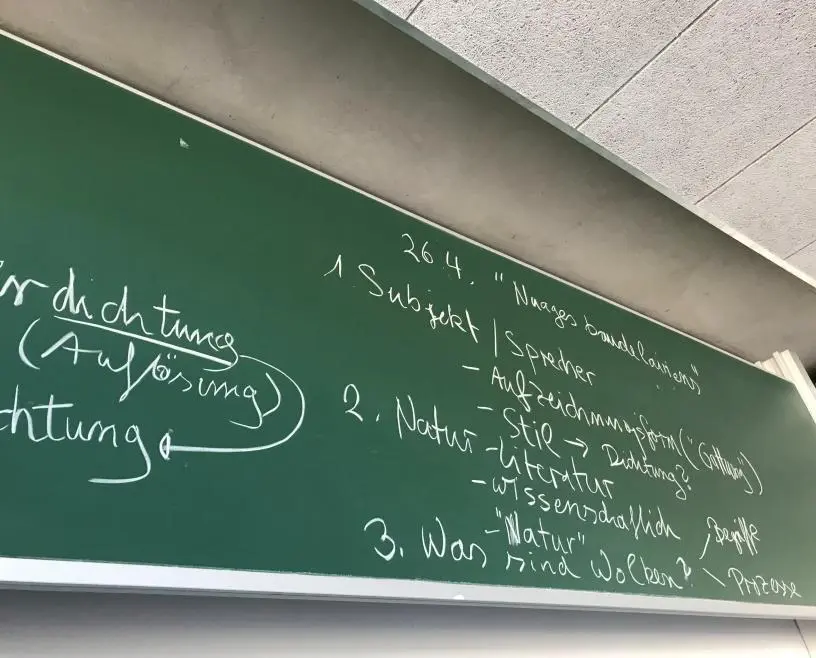 dichtung
(Auflösung)
chtung
26.4. "Nuages baudelairiens"
1. Subjekt / Sprecher
- Aufzeichnungsform ("Gattung")
- Stil → Dichtung?
2. Natur - Literatur
- wissenschaftlich
- "Natur"
3. Was sind Wolken? / Begriffe
\ Prozesse